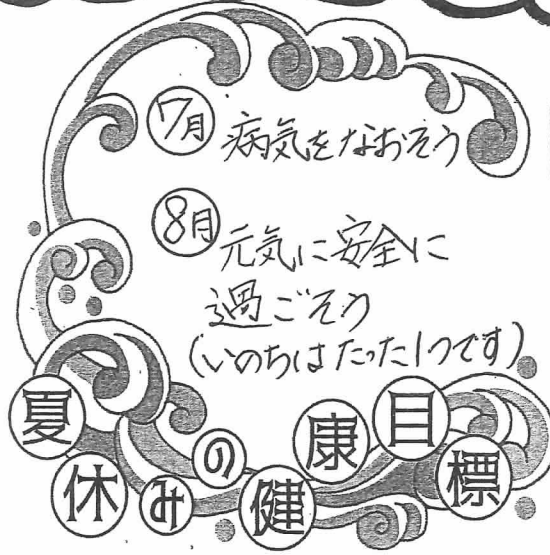 7月 病気をなおそう
8月 元気に安全に
過ごそう
(いのちはたった1つです)
夏休みの健康目標